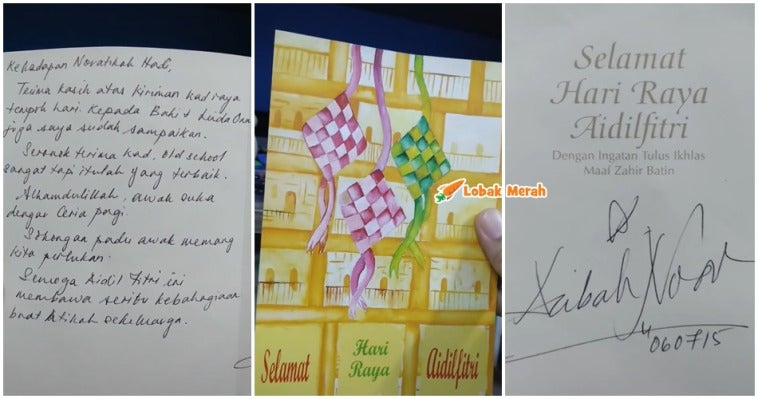 Kehadapan Noratikah Hadi,
Terima kasih atas kiriman kad raya
tempoh hari. Kepada Baki & Linda Onn
juga saya sudah sampaikan.
Seronok terima kad. Old school
sangat tapi itulah yang terbaik.
Alhamdulillah, awak suka
dengar Ceria pagi.
Sokongan padu awak memang
kita perlukan.
Semoga Aidil Fitri ini
membawa seribu kebahagiaan
buat Atikah sekeluarga.
Selamat
Hari
Raya
Aidilfitri
Lobak Merah
Selamat
Hari Raya
Aidilfitri
Dengan Ingatan Tulus Ikhlas
Maaf Zahir Batin
060715